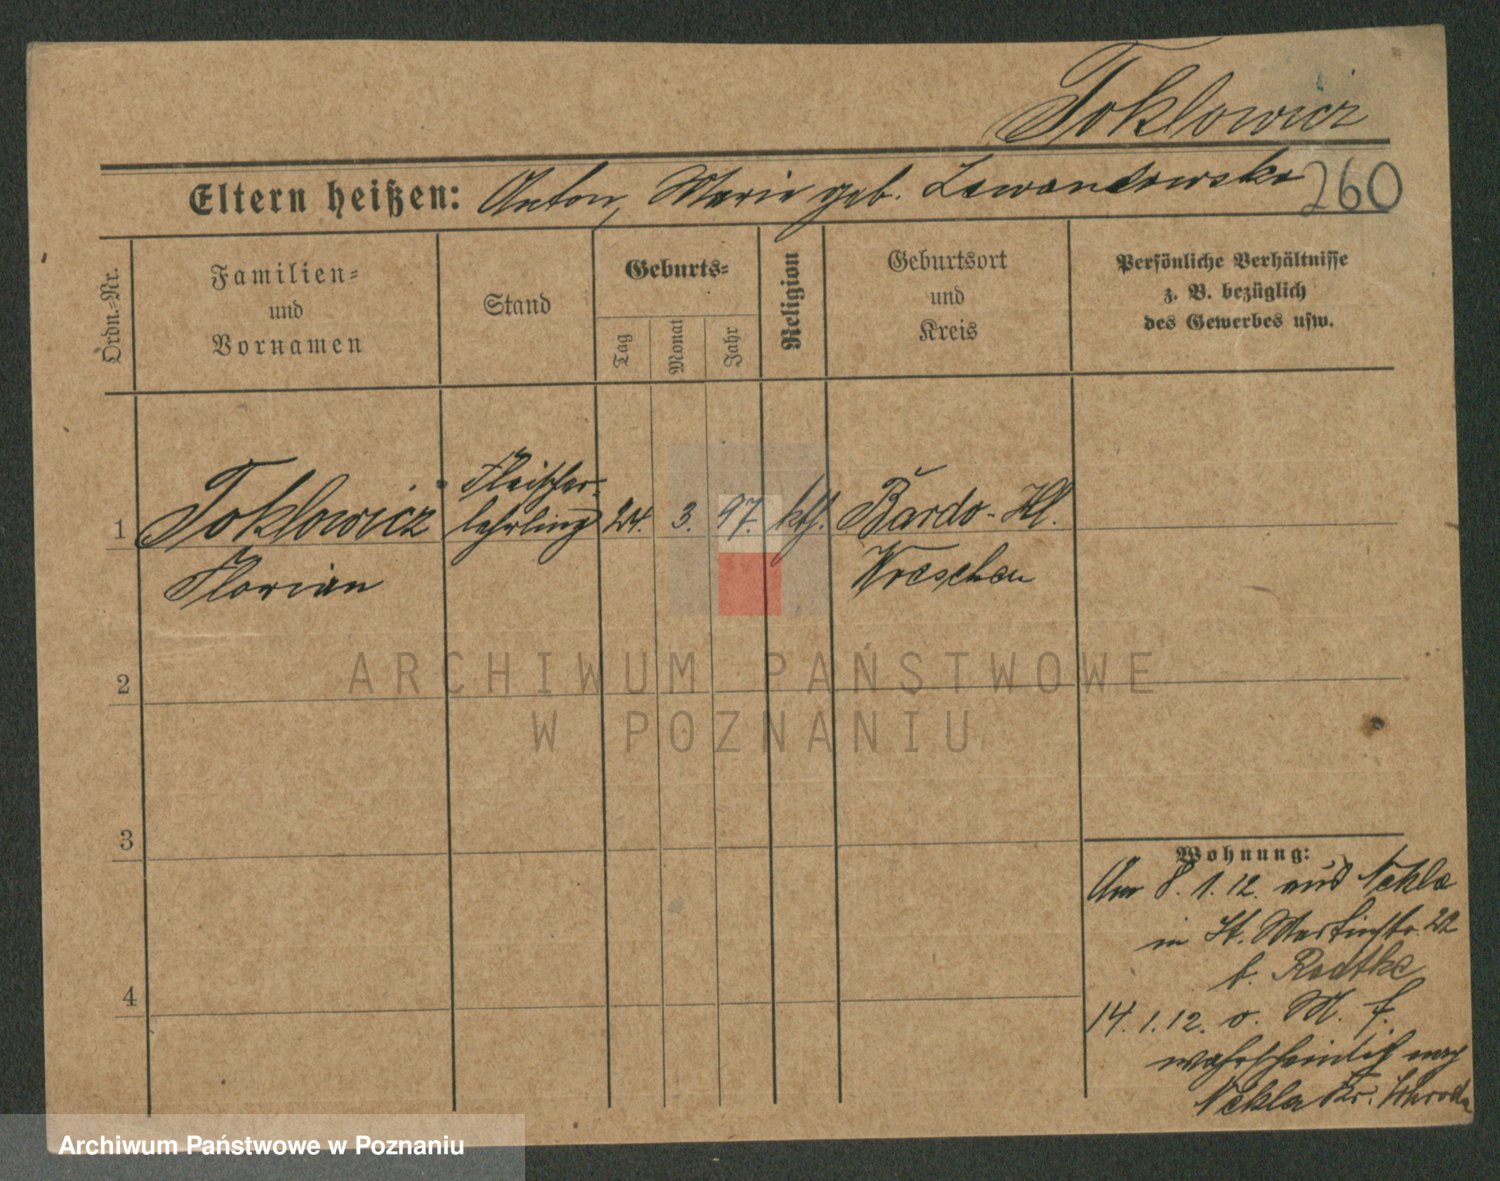 Toklowicz
Eltern heißen: Anton, Marie geb. Lewandowska 260
Ordn.-Nr.
Familien-
und
Vornamen
Stand
Geburts-
Tag
Monat
Jahr
Religion
Geburtsort
und
Kreis
Persönliche Verhältnisse
z. B. bezüglich
des Gewerbes usw.
Fleischer-
1 Toklowicz lehrling 24. 3. 97. kth. Bardo-Hl.
Florian Wreschen
2
3
4
Wohnung:
Am 8. 1. 12. aus Nekla
in St. Martinstr. 22
b. Radtke
14. 1. 12. o. M. f.
wahrscheinlich nach
Nekla Kr. Schroda
ARCHIWUM PAŃSTWOWE
W POZNANIU
Archiwum Państwowe w Poznaniu